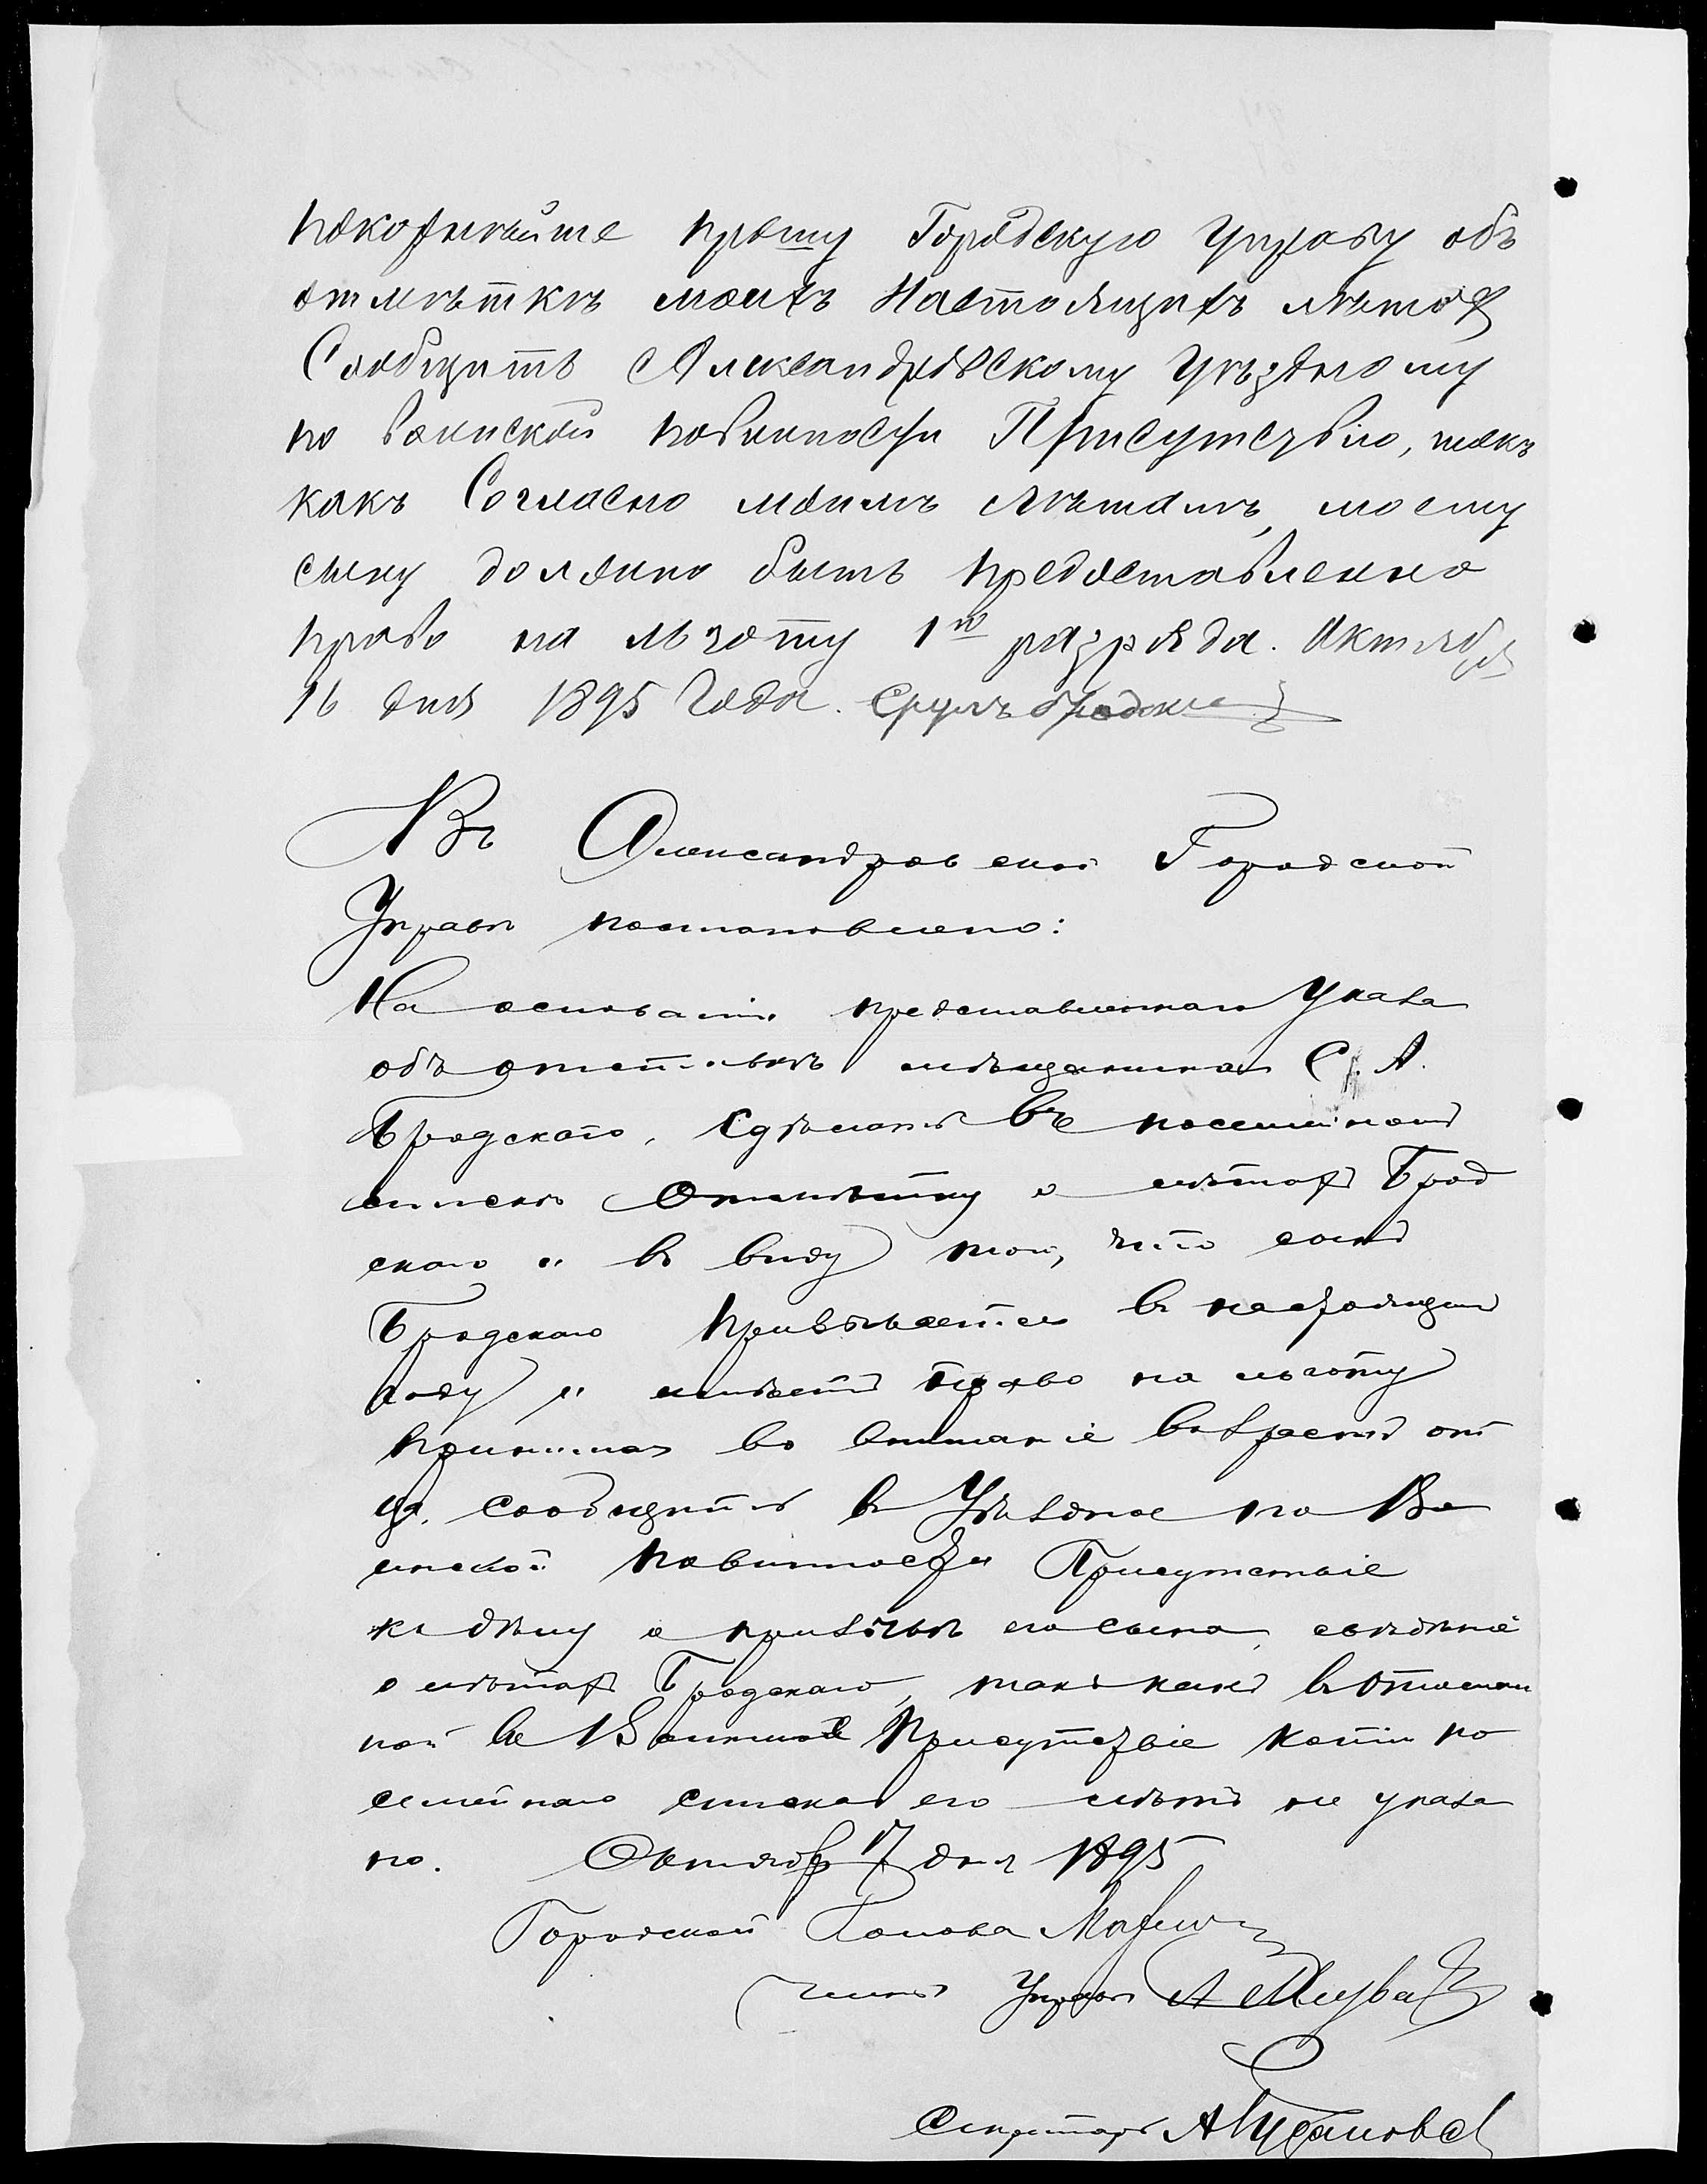 покорнѣйше прошу Городскую Управу объ
отмѣткѣ моихъ настоящихъ лѣтах
Сообщить Александровскому Уѣздному
по воинской повинности Присутствію, такъ
какъ Согласно моимъ лѣтамъ, моему
сыну должно быть предоставленно
право на льготу 1го разряда. Октября
16 дня 1895 Года. Сруль Бродский
Въ Александровской Городской
Управѣ постановлено:
На основаніи представленнаго Указа
объ отставкѣ мѣщанина С. А.
Бродскаго, сдѣлать въ посемейномъ
спискѣ отмѣтку о лѣтахъ Брод
скаго и въ виду того, что сынъ
Бродскаго призывается въ настоящемъ
году и имѣетъ право на льготу
принимая во вниманіе возрастъ от
ца, сообщить въ Уѣздное по Во
инской повинности Присутствіе
къ дѣлу о призывѣ его сына, свѣдѣніе
о лѣтахъ Бродскаго, такъ какъ въ отослан
ной въ Воинское Присутствіе копіи по
семейнаго списка его лѣтъ не указа
но. Октября 17 дня 1895
Городской Голова
Членъ Управы А
Секретарь А